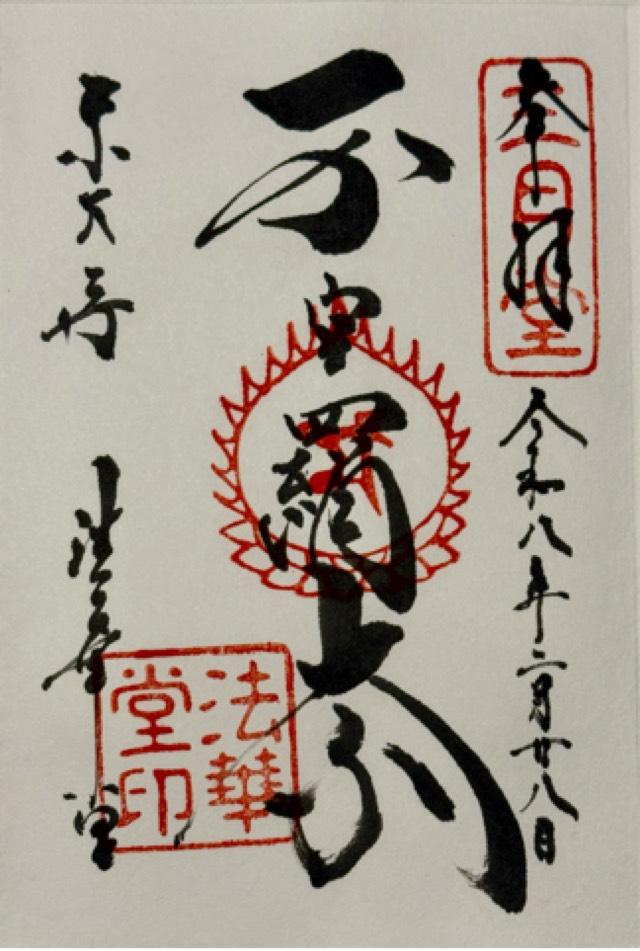 奉拝
令和八年二月廿八日
不空羂索
東大寺
法華堂
法華
堂印